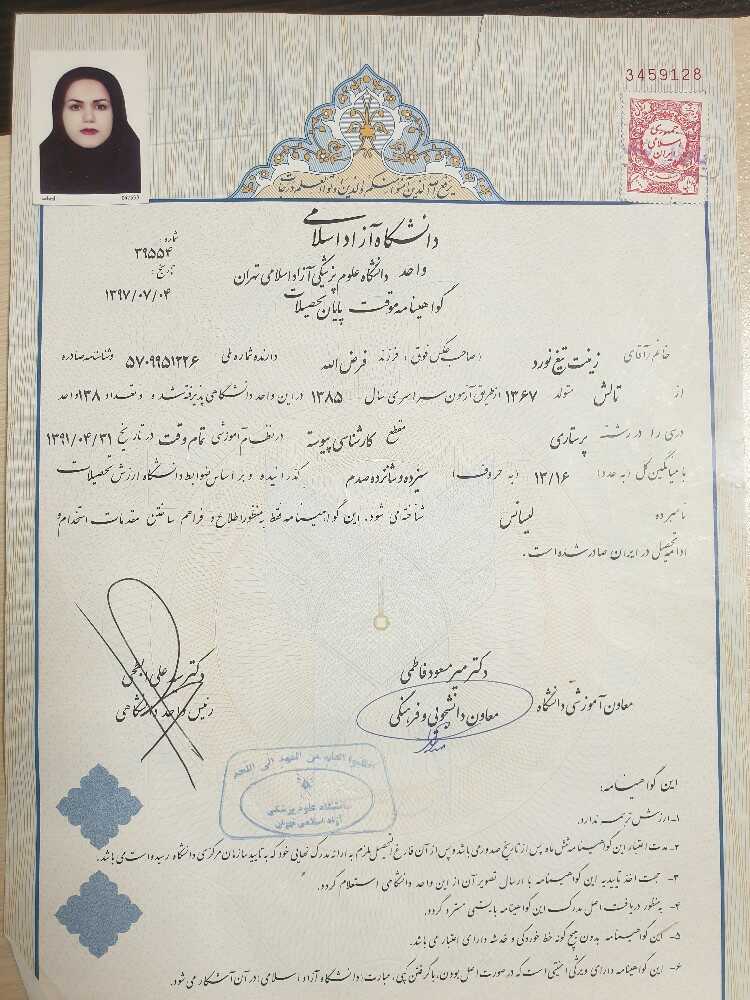 3459128
جمهوری
اسلامی
ایران
یرفع الله الذین آمنوا منکم والذین اوتوا العلم درجات
دانشگاه آزاد اسلامی
شماره:
۳۹۵۵۴
واحد دانشگاه علوم پزشکی آزاد اسلامی تهران
تاریخ:
۱۳۹۷/۰۷/۰۴
گواهینامه موقت پایان تحصیلات
خانم/آقای زینت تیغ نورد (صاحب عکس فوق) فرزند فرض الله دارنده شماره ملی ۵۷۰۹۹۵۱۲۲۶ و شناسنامه صادره
از تالش متولد ۱۳۶۷ از طریق آزمون سراسری سال ۱۳۸۵ در این واحد دانشگاهی پذیرفته شد و تعداد ۱۳۸ واحد
درسی را در رشته پرستاری مقطع کارشناسی پیوسته در نظام آموزشی تمام وقت در تاریخ ۱۳۹۱/۰۴/۳۱
با میانگین کل (به عدد) ۱۳/۱۶ (به حروف) سیزده و شانزده صدم گذرانیده و بر اساس ضوابط دانشگاه ارزش تحصیلات
نامبرده لیسانس شناخته می شود. این گواهینامه فقط به منظور اطلاع و فراهم ساختن مقدمات استخدام و
ادامه تحصیل در ایران صادر شده است.
دکتر میر مسعود فاطمی
معاون آموزشی دانشگاه
معاون دانشجویی و فرهنگی
دکتر سید علی
رئیس واحد دانشگاهی
اطلبوا العلم من المهد الی اللحد
دانشگاه علوم پزشکی
آزاد اسلامی تهران
این گواهینامه:
۱- ارزش ترجمه ندارد.
۲- مدت اعتبار این گواهینامه شش ماه پس از تاریخ صدور می باشد و پس از آن فارغ التحصیل ملزم به ارائه مدرک نهایی خود که به تایید سازمان مرکزی دانشگاه رسیده است می باشد.
۳- جهت اخذ تاییدیه این گواهینامه با ارسال تصویر آن از این واحد دانشگاهی استعلام گردد.
۴- به منظور دریافت اصل مدرک این گواهینامه بایستی مسترد گردد.
۵- این گواهینامه بدون هیچ گونه خط خوردگی و خدشه دارای اعتبار می باشد.
۶- این گواهینامه دارای ویژگی امنیتی است که در صورت اصل بودن، با گرفتن کپی، عبارت (دانشگاه آزاد اسلامی) در آن آشکار می شود.